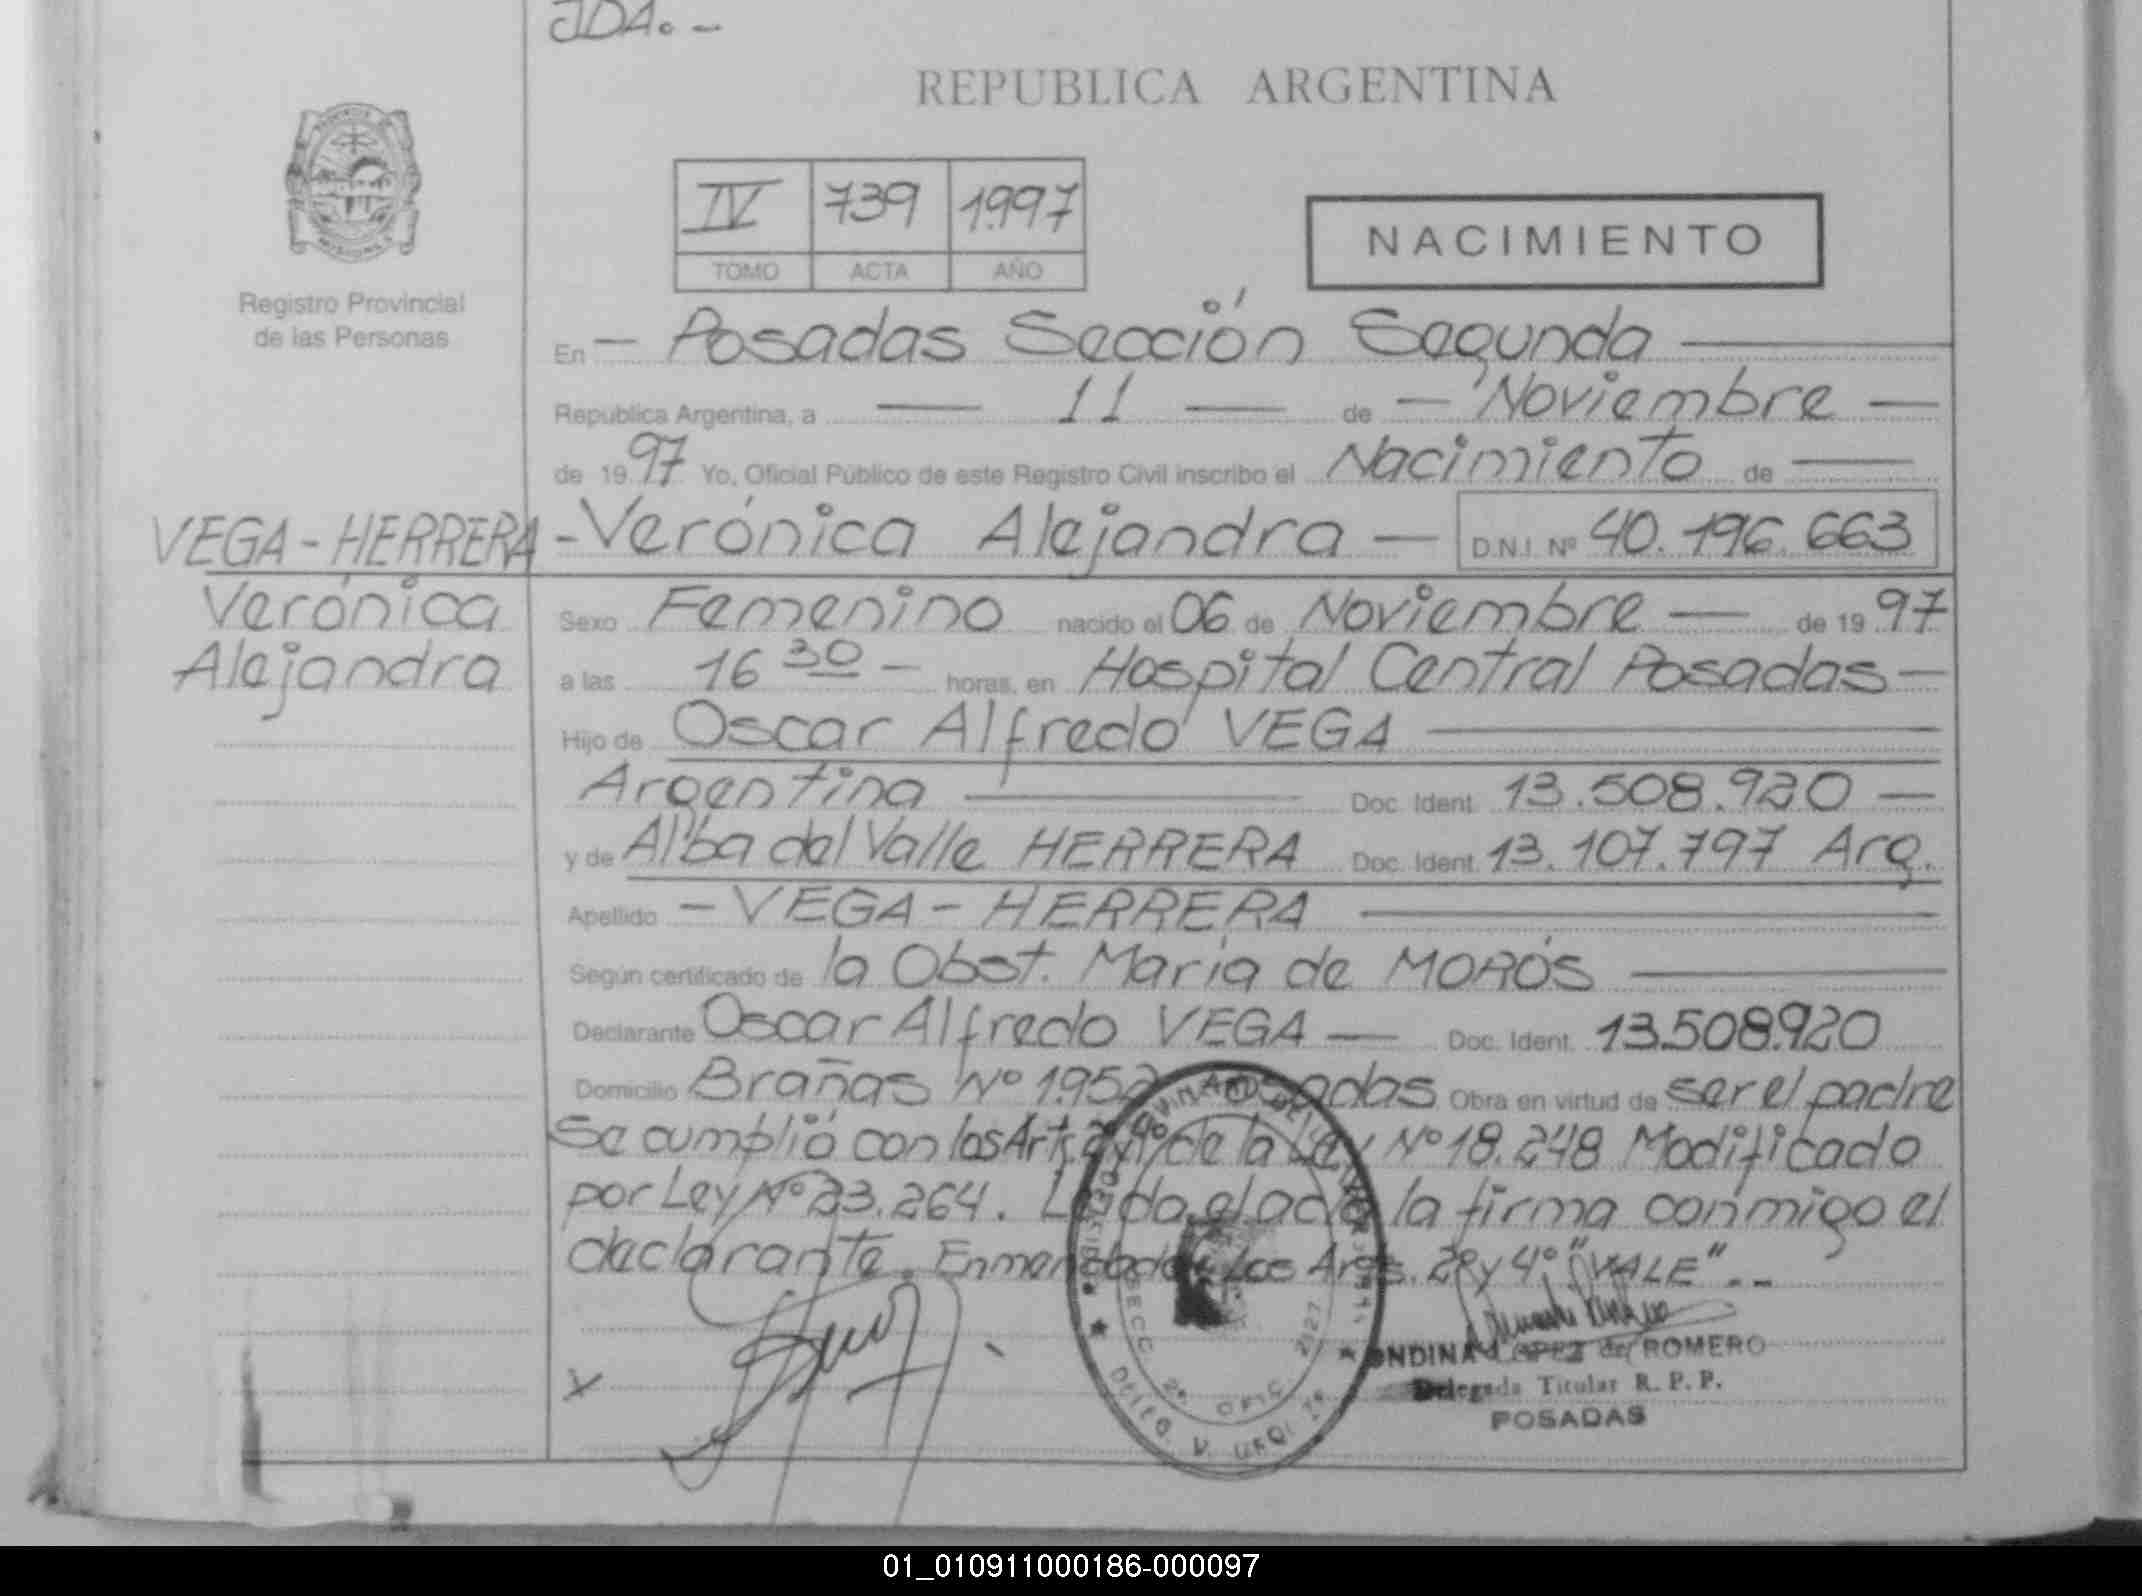 JDA. -
REPUBLICA ARGENTINA
IV 739 1997
TOMO ACTA AÑO
NACIMIENTO
Registro Provincial
de las Personas
En - Posadas Sección Segunda
Republica Argentina, a — 11 — de — Noviembre —
de 1997 Yo, Oficial Público de este Registro Civil inscribo el Nacimiento de —
- Verónica Alejandra — D.N.I. Nº 40.196.663
VEGA - HERRERA
Verónica
Alejandra
Sexo Femenino nacido el 06 de Noviembre — de 1997
a las 16 30 - horas, en Hospital Central Posadas -
Hijo de Oscar Alfredo VEGA
Argentina — Doc. Ident. 13.508.920 —
y de Alba del Valle HERRERA Doc. Ident. 13.107.797 Arg.
Apellido - VEGA - HERRERA
Según certificado de la Obst. María de MORÓS
Declarante Oscar Alfredo VEGA — Doc. Ident. 13.508.920
Domicilio Brañas Nº 1.952 Posadas Obra en virtud de ser el padre
Se cumplió con los Arts. de la Ley Nº 18.248 Modificado
por Ley Nº 23.264. Leída el acta la firma conmigo el
declarante. Enmendado: Los Args. 2º y 4º "VALE". - -
X
SECC 2ª OFIC 2127
Dcito. V. URQ
ONDINA LOPEZ de ROMERO
Delegada Titular R. P. P.
POSADAS
01_010911000186-000097